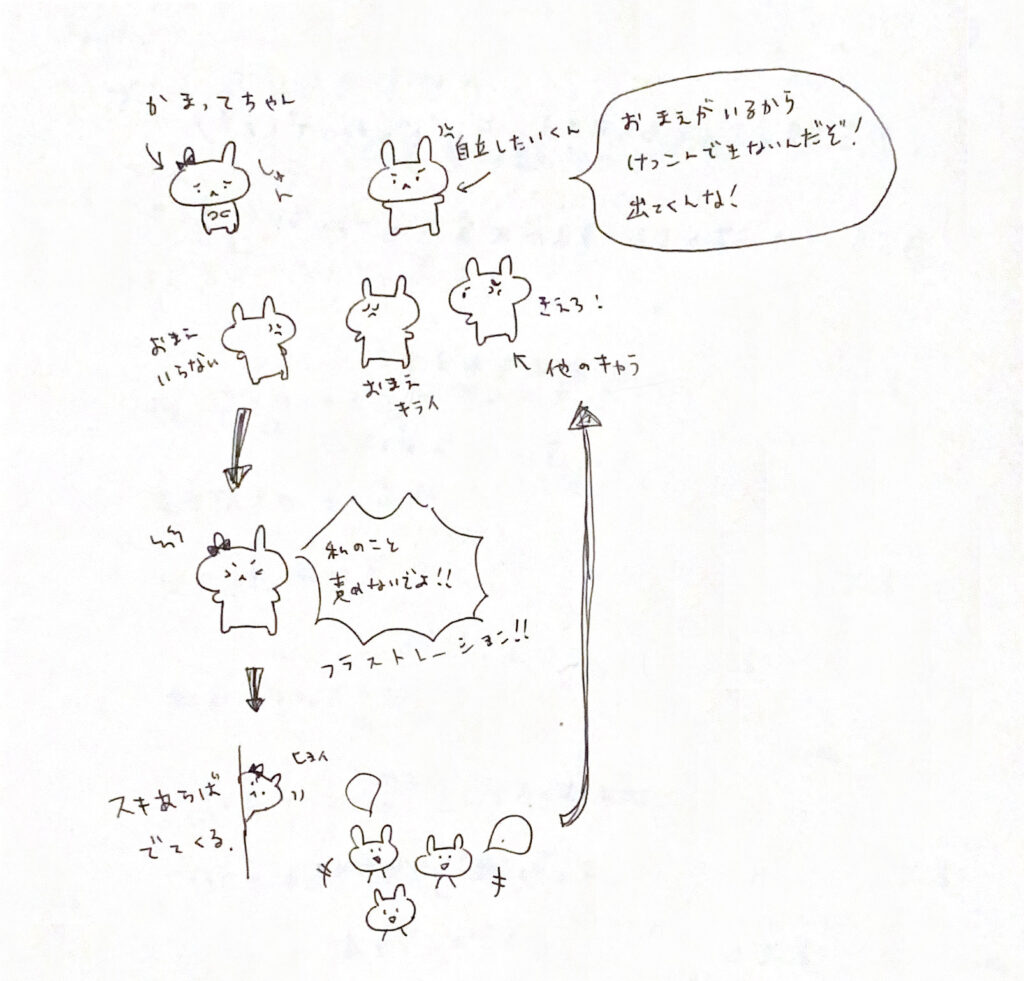 かまってちゃん
しゅん
自立したいくん
おまえがいるから
けっこんできないんだぞ!
出てくんな!
おまえ
いらない
おまえ
キライ
きえろ!
他のキャラ
私のこと
責めないでよ!!
フラストレーション!!
スキあらば
でてくる.
ヒョイ
キ
キ